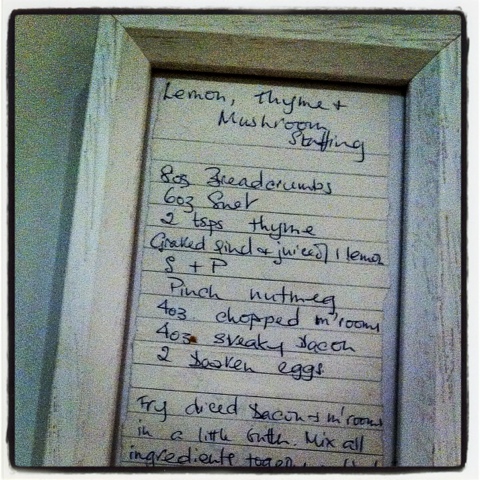 Lemon, thyme +
Mushroom
Stuffing
8oz Breadcrumbs
6oz Suet
2 tsps thyme
Grated rind + juice of 1 lemon
S + P
Pinch nutmeg
4oz chopped m'rooms
4oz streaky bacon
2 beaten eggs
Fry diced bacon + m'rooms
in a little butter. Mix all
ingredients together